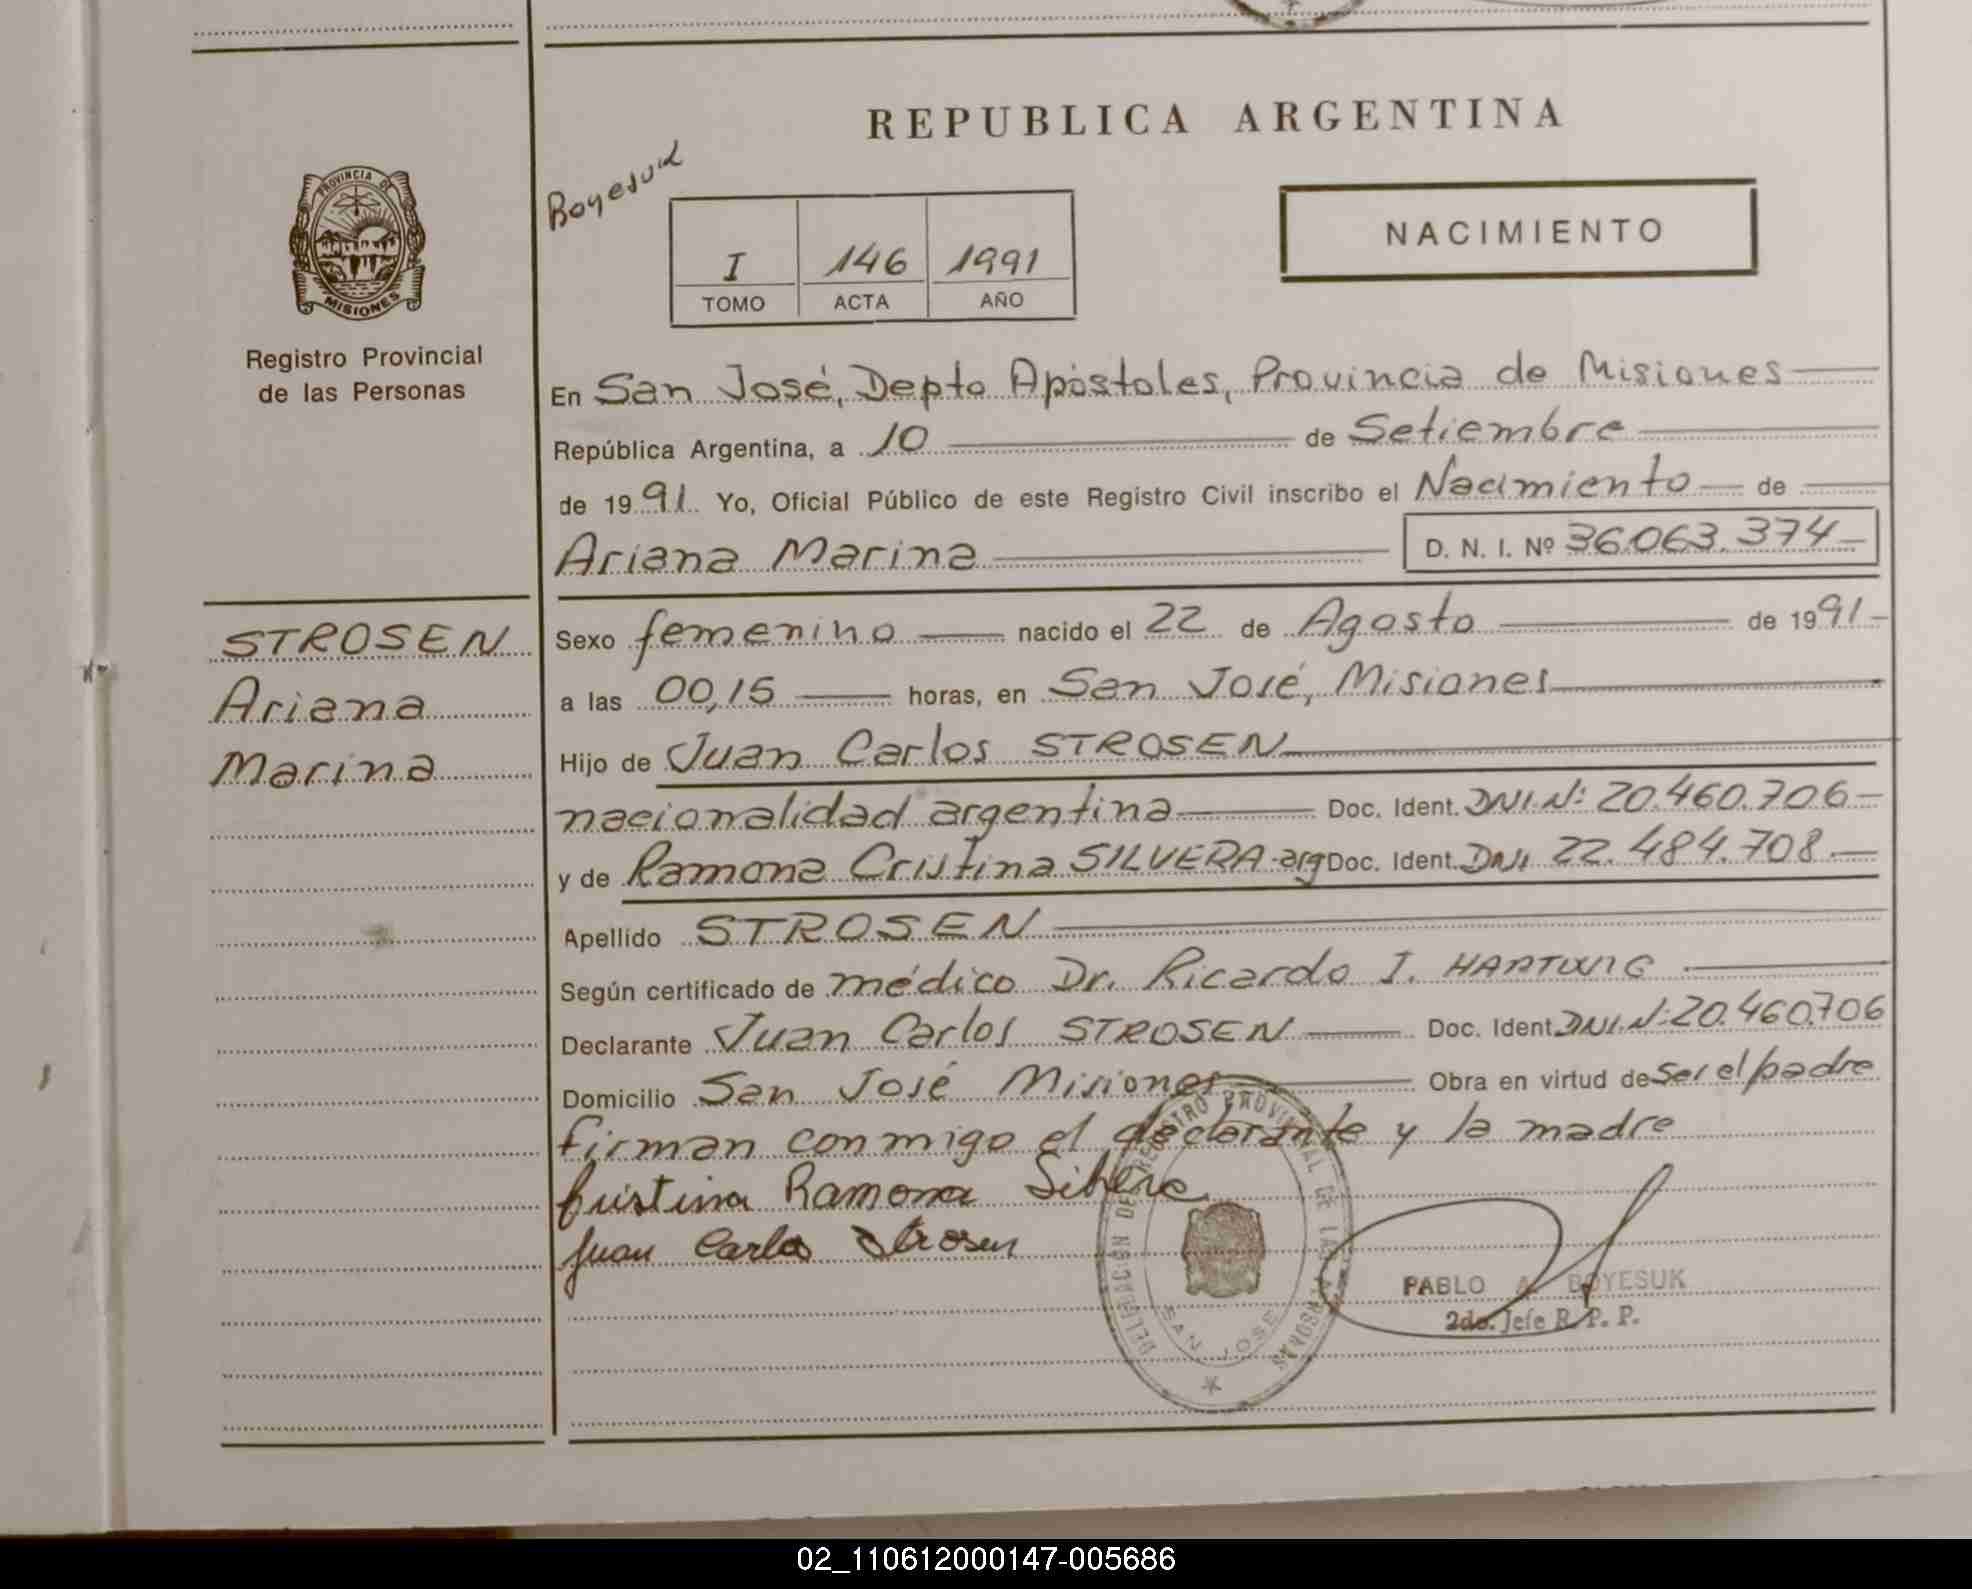 REPUBLICA ARGENTINA
PROVINCIA DE
MISIONES
Registro Provincial
de las Personas
I 146 1991
TOMO ACTA AÑO
NACIMIENTO
En San José, Depto Apóstoles, Provincia de Misiones
República Argentina, a 10 de Setiembre
de 1991. Yo, Oficial Público de este Registro Civil inscribo el Nacimiento de
Ariana Marina D. N. I. Nº 36.063.374
STROSEN
Ariana
Marina
Sexo femenino nacido el 22 de Agosto de 1991
a las 00,15 horas, en San José, Misiones
Hijo de Juan Carlos STROSEN
nacionalidad argentina Doc. Ident. DNI.N: 20.460.706
y de Ramona Cristina SILVERA-arg Doc. Ident. DNI 22.484.708.
Apellido STROSEN
Según certificado de médico Dr. Ricardo I. HARTWIG
Declarante Juan Carlos STROSEN Doc. Ident. DNI.N: 20.460.706
Domicilio San José Misiones Obra en virtud de ser el padre
firman conmigo el declarante y la madre
Cristina Ramona
Juan Carlos Strosen
DELEGACION DEL REGISTRO PROVINCIAL DE LAS PERSONAS
SAN JOSE
PABLO A. BOYESUK
2do. Jefe R. P. P.
02_110612000147-005686